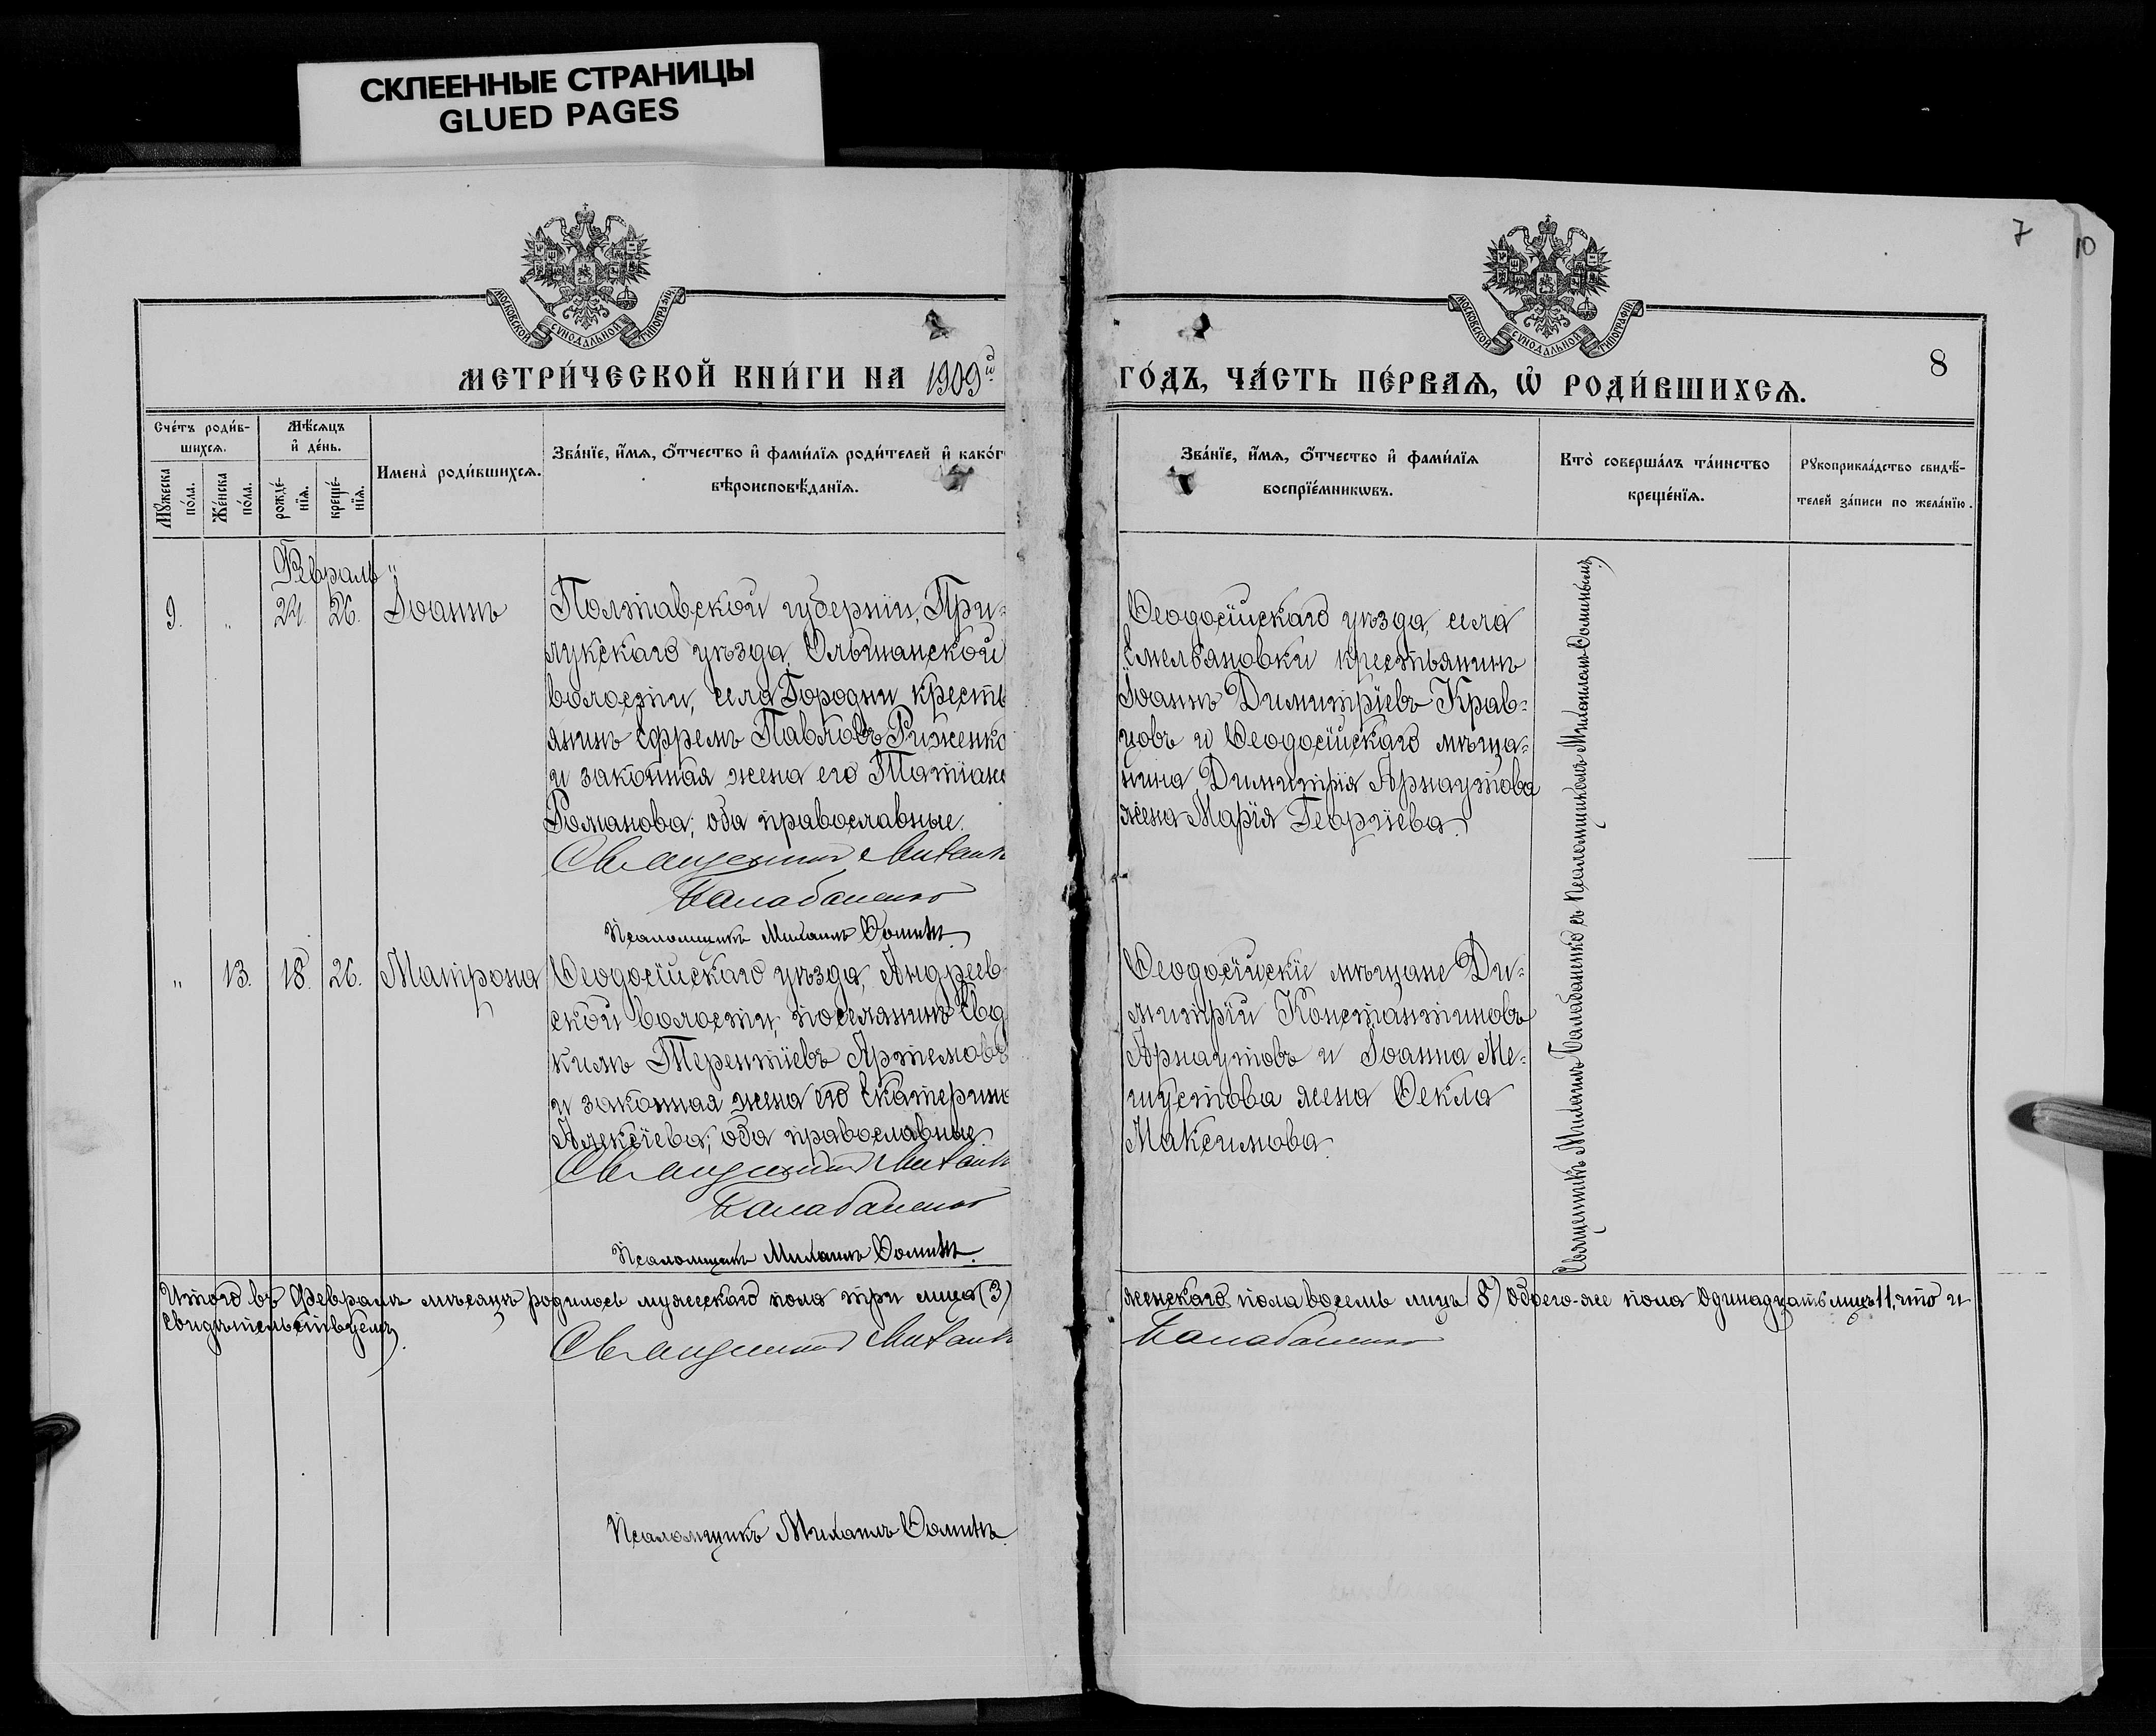 СКЛЕЕННЫЕ СТРАНИЦЫ
GLUED PAGES
7
10
8
МОСКОВСКОЙ СУНОДАЛЬНОЙ ТИПОГРАФІИ
МОСКОВСКОЙ СУНОДАЛЬНОЙ ТИПОГРАФІИ
МЕТРИ́ЧЕСКОЙ КНИ́ГИ НА 1909й
ГО́ДЪ, ЧА́СТЬ ПЕ́РВАѦ, Ѡ҆ РОДИ́ВШИХСѦ.
Сче́тъ роди́в-
шихсѧ.
Мꙋжеска
по́ла.
Же́нска
по́ла.
Мѣ́сѧцъ
и҆ де́нь.
рожде́-
нїѧ.
креще́-
нїѧ.
Имена̀ роди́вшихсѧ.
Зва́нїе, и҆́мѧ, ѻ҆́тчество и҆ фами́лїѧ роди́телей и҆ како́г
вѣроисповѣ́данїѧ.
Зва́нїе, и҆́мѧ, ѻ҆́тчество и҆ фами́лїѧ
воспрїе́мникѡвъ.
Кто̀ соверша́лъ та́инство
креще́нїѧ.
Рꙋкоприкла́дство свидѣ́-
телей за́писи по жела́нїю.
Февраль
9. " 24. 26. Іоаннъ
Полтавской губерніи, При-
лукскаго уѣзда, Ольшанской
волости, села Городни кресть
янинъ Ефремъ Павловъ Риженко
и законная жена его Татіана
Романова, оба православные.
Священникъ Михаилъ
Балабаненко
Псаломщикъ Михаилъ Ѳоминъ
Ѳеодосійскаго уѣзда, села
Емельяновки крестьянинъ
Іоаннъ Димитріевъ Крав-
цовъ и Ѳеодосійскаго мѣща-
нина Димитрія Арнаутова
жена Марія Георгіева.
Священникъ Михаилъ Балабаненко съ Псаломщикомъ Михаиломъ Ѳоминымъ
" 13. 18. 26. Матрона
Ѳеодосійскаго уѣзда, Андреев
ской волости, поселянинъ Евд
кимъ Терентіевъ Артемовъ
и законная жена его Екатерина
Алексіева, оба православные.
Священникъ Михаилъ
Балабаненко
Псаломщикъ Михаилъ Ѳоминъ.
Ѳеодосійскіе мѣщане Ди-
митрій Константиновъ
Арнаутовъ и Іоанна Ме-
шустова жена Ѳекла
Максимова.
Итого въ Февралѣ мѣсяцѣ родилось мужескаго пола три лица (3)
женскаго пола восемь лицъ (8) Обоего-же пола Одинадцать лицъ 11, что и
свидѣтельствуемъ
Священникъ Михаилъ
Балабаненко
Псаломщикъ Михаилъ Ѳоминъ.